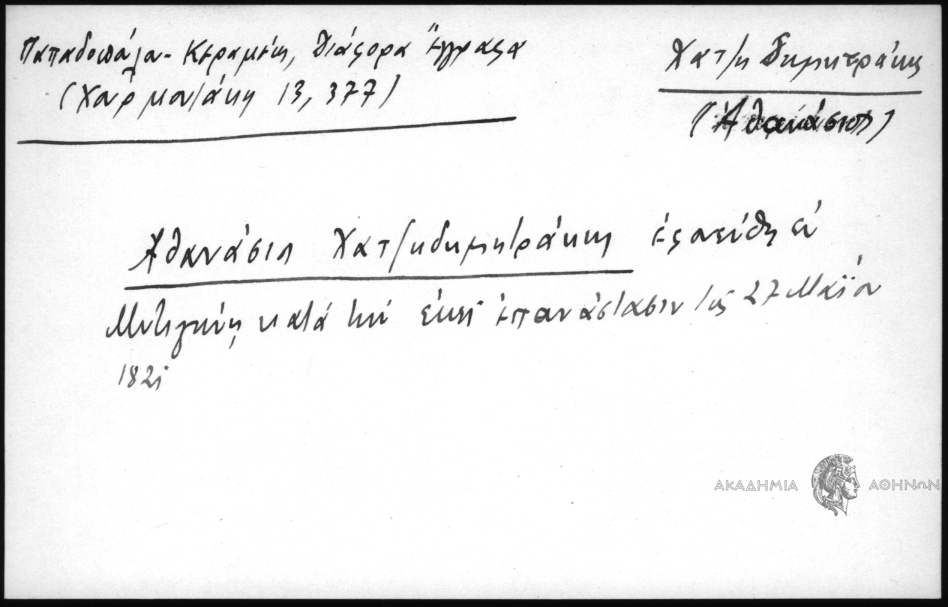 Παπαδοπούλου - Κεραμέως, Διάφορα Έγγραφα
(Χαρμολάκη 13, 377)
Χατζη Δημητράκης
(Αθανάσιος)
Αθανάσιος Χατζηδημητράκης εφονεύθη εν
Μυτιλήνη κατά την εκεί επανάστασιν της 27 Μαΐου
1821
ΑΚΑΔΗΜΙΑ ΑΘΗΝΩΝ